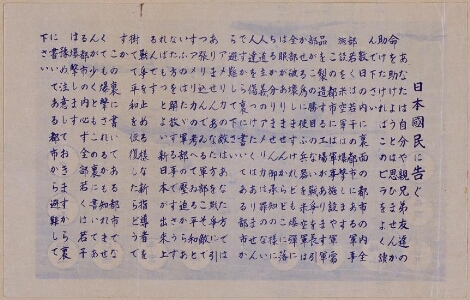 日本國民に告ぐ
あなたは自分や親兄弟友達の
命を助けようとは思ひませんか
助けたければこのビラをよく讀
んで下さい
数日の内に裏面の都市の内全
部若くは若干の都市にある軍事
施設を米空軍は爆撃します
この都市には軍事施設や軍需
品を製造する工場があります軍部
がこの勝目のない戦争を長引
かせる為に使ふ兵器を米空軍
は全部破壊しますけれども爆弾に
は眼がありませんからどこに落
ちるか分りません御承知の様に
人道主義のアメリカは罪のない
人達を傷つけたくはありません
ですから裏に書いてある都市か
ら避難して下さい
アメリカの敵はあなた方では
ありませんあなた方を戦争に引
張り込んでゐる軍部こそ敵で
すアメリカの考へてゐる平和と
いふのはただ軍部の壓迫からあ
なた方を解放する事ですさうす
ればもつとよい新日本が出来上
るんです
戦争を止める様な新指導者を
樹てて平和を恢復したらどうで
すか
この裏に書いてある都市でな
くても爆撃されるかも知れませ
んが少くともこの裏に書いてあ
る都市の内必ず全部若くは若干
は爆撃します
豫め注意しておきますから裏
に書いてある都市から避難して
下さい